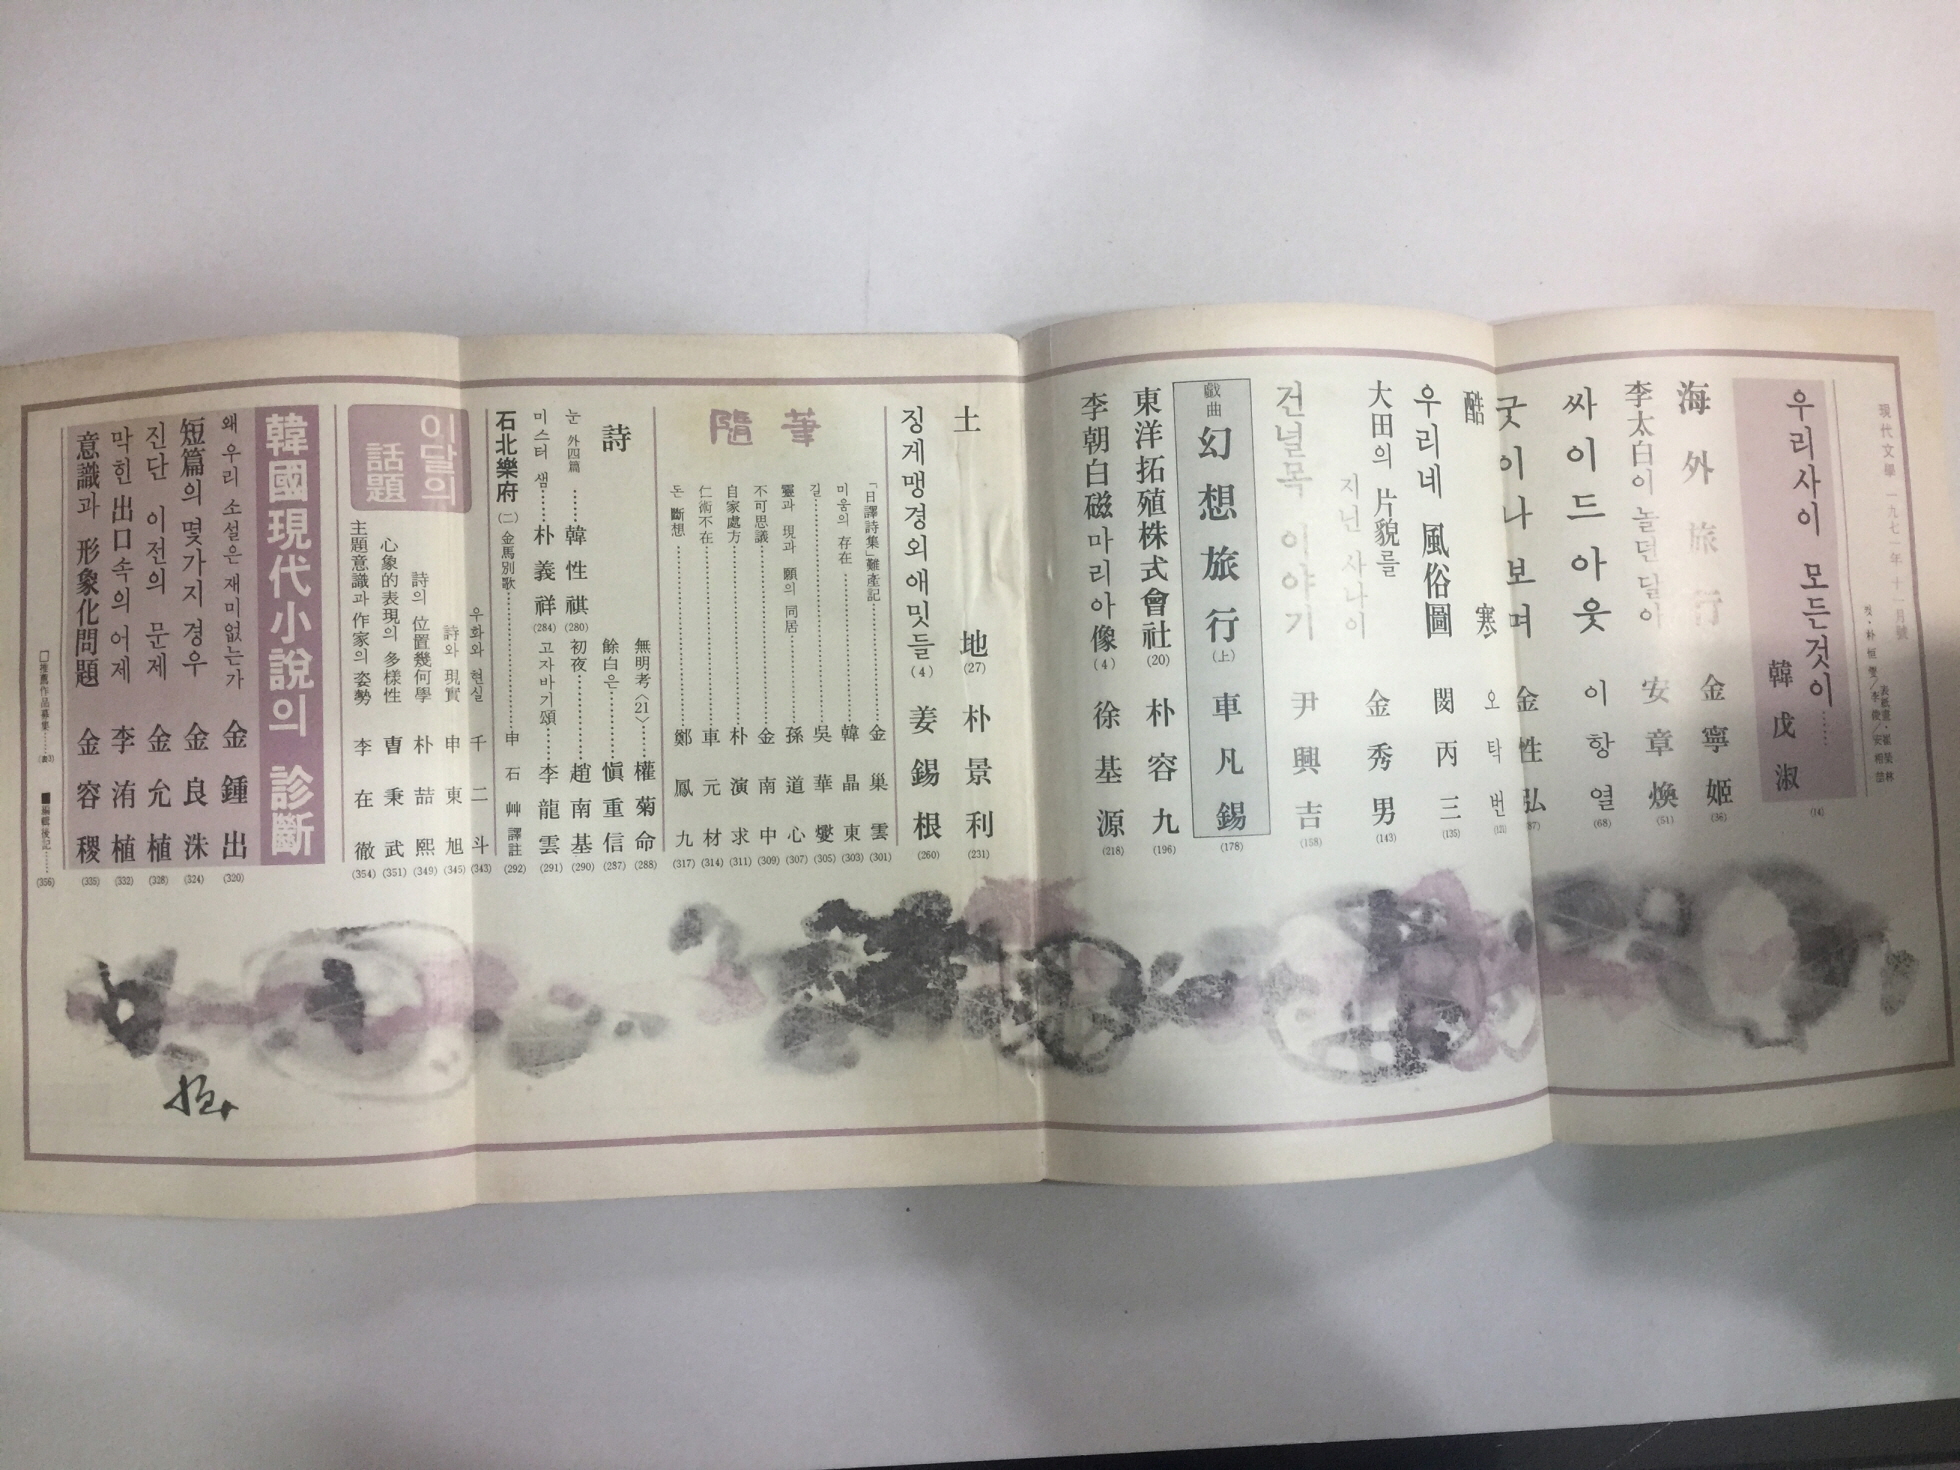 現代文學 一九七一年十一月號
우리사이 모든것이……
韓戊淑 (14)
海外旅行 金寧姬 (36)
李太白이 놀던 달아 安章煥 (51)
싸이드아웃 이항열 (68)
굿이나보며 金性弘 (87)
酷寒 오탁번 (121)
우리네 風俗圖 閔丙三 (135)
大田의 片貌를
지닌 사나이 金秀男 (143)
건널목 이야기 尹興吉 (158)
戱曲 幻想旅行 (上) 車凡錫 (178)
東洋拓殖株式會社 (20) 朴容九 (196)
李朝白磁마리아像 (4) 徐基源 (218)
土地 (27) 朴景利 (231)
징게맹경외애밋들 (4) 姜錫根 (260)
隨筆
「日譯詩集」難產記 金巢雲 (301)
미움의 存在 韓晶東 (303)
길 吳華燮 (305)
靈과 現과 願의 同居 孫道心 (307)
不可思議 金南中 (309)
自家處方 朴演求 (311)
仁術不在 車元材 (314)
돈 斷想 鄭鳳九 (317)
詩
無明考〈21〉 權菊命 (288)
餘白은 愼重信 (287)
눈 外四篇 韓性祺 (280)
初夜 趙南基 (290)
미스터 샘 朴義祥 (284)
고자바기頌 李龍雲 (291)
石北樂府 (二) 金馬別歌 申石艸 譯註 (292)
이달의 話題
우화와 현실 千二斗 (343)
詩와 現實 申東旭 (345)
詩의 位置幾何學 朴喆熙 (349)
心象的表現의 多樣性 曺秉武 (351)
主題意識과 作家의 姿勢 李在徹 (354)
韓國現代小說의 診斷
왜 우리 소설은 재미없는가 金鍾出 (320)
短篇의 몇가지 경우 金良洙 (324)
진단 이전의 문제 金允植 (328)
막힌 出口속의 어제 李洧植 (332)
意識과 形象化問題 金容稷 (335)
□推薦作品募集……(表3) ■編輯後記……(356)